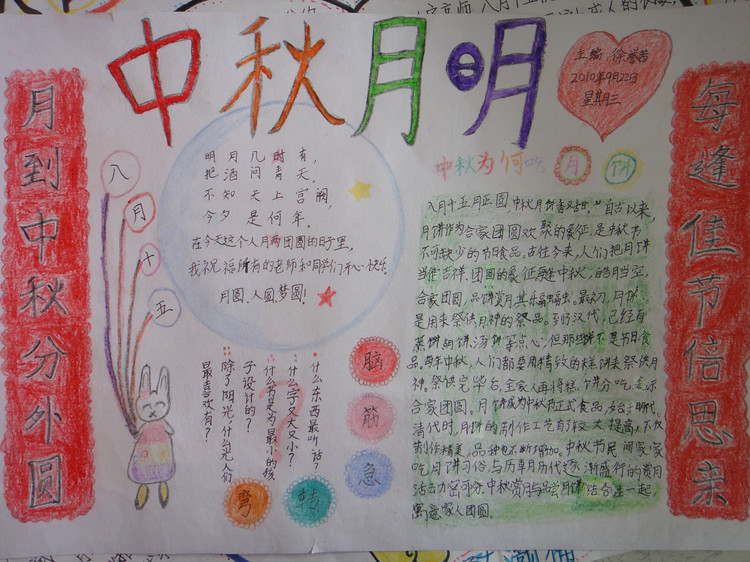 中秋月明
主编:徐
2010年9月22日
星期三
月到中秋分外圆
每逢佳节倍思来
八
月
十
五
明月几时有,
把酒问青天。
不知天上宫阙,
今夕是何年。
在今天这个人月两团圆的日子里,
我祝福所有的老师和同学们开心快乐。
月圆、人圆、梦圆!
中秋为何吃月饼
八月十五月正圆,中秋月饼香又甜。"自古以来,
月饼作为合家团圆欢聚的象征,是中秋节
不可缺少的节日食品。古往今来,人们把月饼
当作吉祥、团圆的象征。每逢中秋,皓月当空,
合家团圆,品饼赏月,其乐融融。最初,月饼
是用来祭供月神的祭品。到了汉代,已经有
蒸饼、胡饼、汤饼等点心,但那些饼不是节日食
品。每年中秋,人们都要用精致的来祭供月
神。祭供完毕后,全家人再将糕、饼分吃,表示
合家团圆。月饼成为中秋节正式食品,始于明代。
清代时,月饼的制作工艺有较大提高,不仅
制作精美,品种也不断增加。中秋节民间家家
吃月饼习俗,与历享月历代逐渐盛行的赏月
活动密可分。中秋赏月与品尝月饼结合在一起,
寓意家人团圆。
脑
筋
急
转
弯
什么东西最听话?
什么字又大又小?
什么书是为最小的孩
子设计的?
除了阳光,什么光人们
最喜欢看?